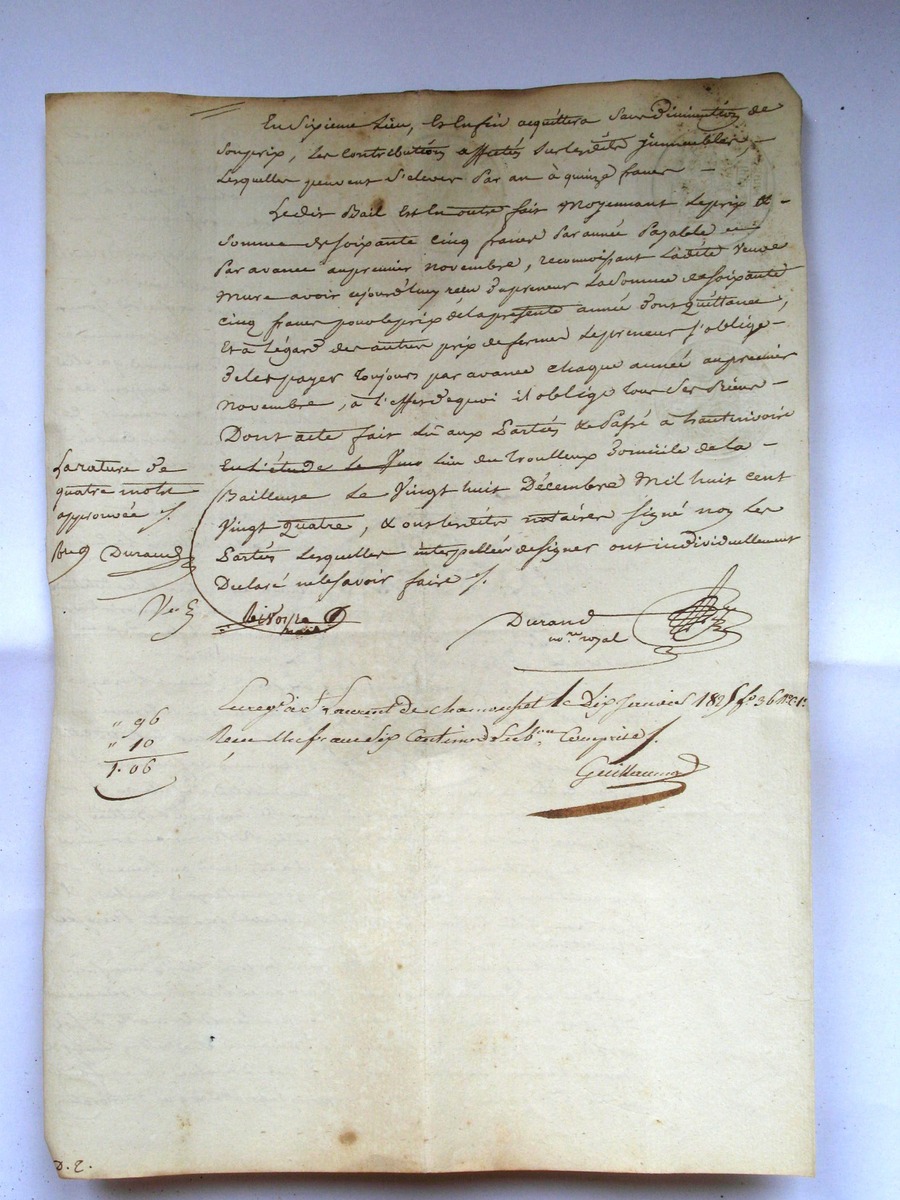 En Sixieme Lieu, Et Enfin acquittera Sans Diminution de
Son prix, Les Contributions affectés Sur lesdits jmmeubles,
Lesquelles peuvent S'elever Par an à quinze francs —
Ledit Bail Est En outre fait Moyennant Le prix &
Somme de Soixante Cinq francs Par année Payable
Par avance au premier novembre, reconnoissant Ladite Veuve
Mure avoir cejourd'huy reçu du preneur La Somme de Soixante
Cinq francs pour le prix de la presente année dont quittance,
Et à l'égard des autres prix de ferme Le preneur s'oblige
de les payer Toujours par avance chaque année au premier
novembre, à l'effet de quoi il oblige tous Ses Biens —
Dont acte fait Lû aux Parties & Passé à hauterivoire
En L'étude Le Lieu du Troulleux Domicile de la
Bailleuse Le Vingt huit Décembre Mil huit cent
Vingt quatre, & ont lesdits notaires signé non Les
Parties Lesquelles interpellées de signer ont individuellement
Declaré ne le savoir faire ./.
La rature de
quatre mots
approuvée ./.
Durand
Durand
no.re royal
Enreg.é à S.t Laurent de Chamousset le Dix Janvier 1825 f.o 36
Reçu un franc Six Centimes Subon Comprise ./.
Guillaumo
" 96
" 10
1. 06
D. 2.